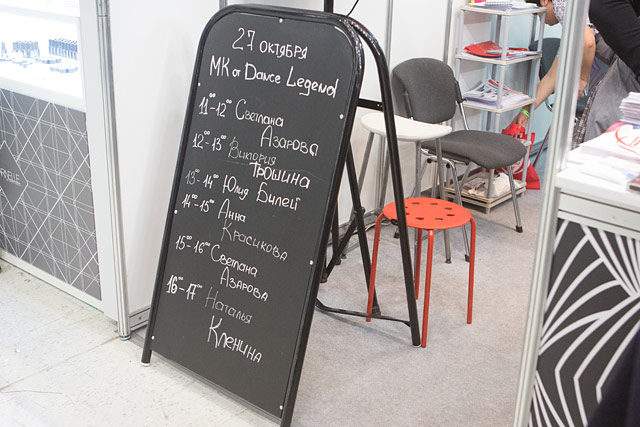 27 октября
МК от Dance Legend
11⁰⁰-12⁰⁰ Светлана
Азарова
12⁰⁰-13⁰⁰ Виктория
Трошина
13⁰⁰-14⁰⁰ Юлия Билей
14⁰⁰-15⁰⁰ Анна
Красикова
15⁰⁰-16⁰⁰ Светлана
Азарова
16⁰⁰-17⁰⁰ Наталья
Кленина